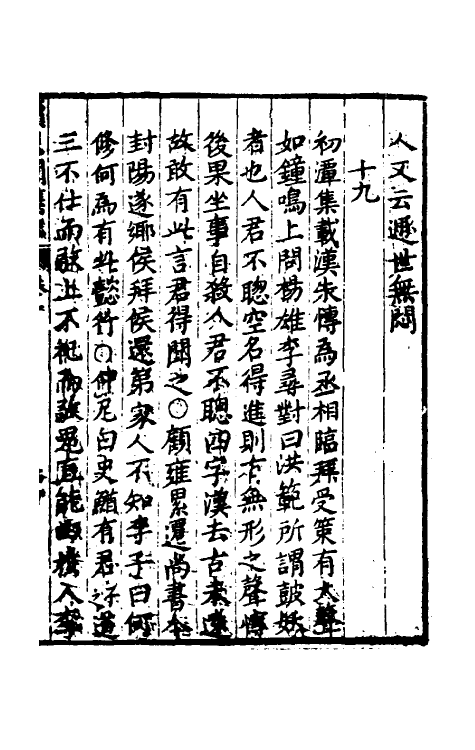 人又云遯世無悶
十九
初潭集載漢朱愽為丞相臨拜受策有大聲
如鐘鳴上問楊雄李尋對曰洪範所謂皷妖
者也人君不聰空名得進則有無形之聲愽
後果坐事自殺人君不聰四字漢去古未遠
故敢有此言君得聞之○顧雍累遷尚書令
封陽遂鄉侯拜侯還第家人不知李子曰何
修何為有此懿行○仲尼曰史鰌有君子道
三不仕而敬上不祀而敬鬼直能曲於人李